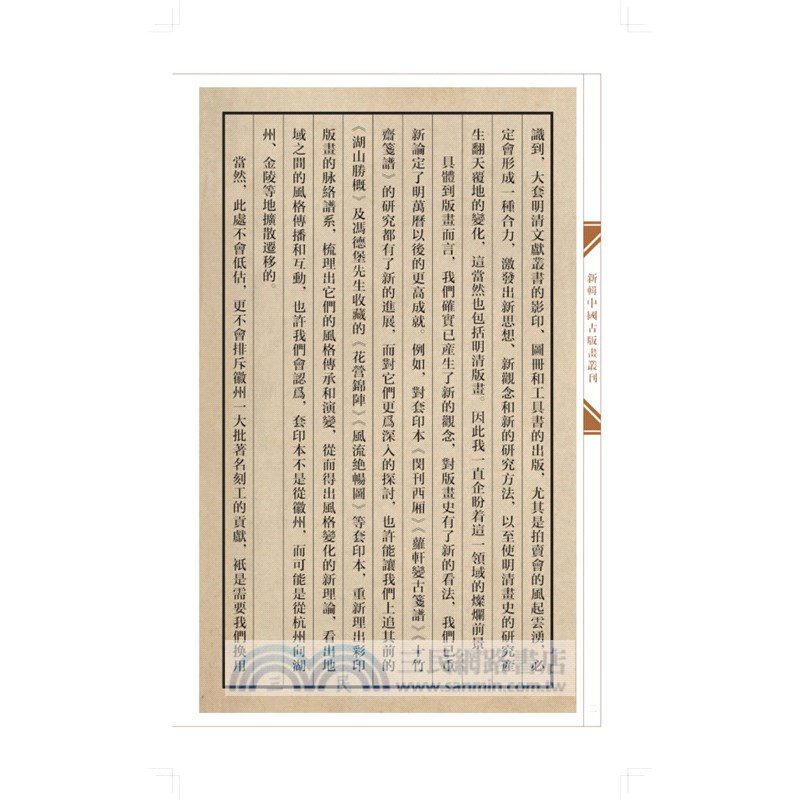 新輯中國古版畫叢刊
二
識到，大套明清文獻叢書的影印、圖冊和工具書的出版，尤其是拍賣會的風起雲湧，必
定會形成一種合力，激發出新思想、新觀念和新的研究方法，以至使明清畫史的研究產
生翻天覆地的變化，這當然也包括明清版畫。因此我一直企盼着這一領域的燦爛前景。
具體到版畫而言，我們確實已産生了新的觀念，對版畫史有了新的看法，我們已重
新論定了明萬曆以後的更高成就。例如，對套印本《閔刊西厢》《蘿軒變古箋譜》《十竹
齋箋譜》的研究都有了新的進展，而對它們更爲深入的探討，也許能讓我們上追其前的
《湖山勝概》及馮德堡先生收藏的《花營錦陣》《風流絶暢圖》等套印本，重新理出彩印
版畫的脉絡譜系，梳理出它們的風格傳承和演變，從而得出風格變化的新理論，看出地
域之間的風格傳播和互動，也許我們會認爲，套印本不是從徽州，而可能是從杭州向湖
州、金陵等地擴散遷移的。
當然，此處不會低估，更不會排斥徽州一大批著名刻工的貢獻，衹是需要我們換用
三民
三民網路書店
www.sanmin.com.tw